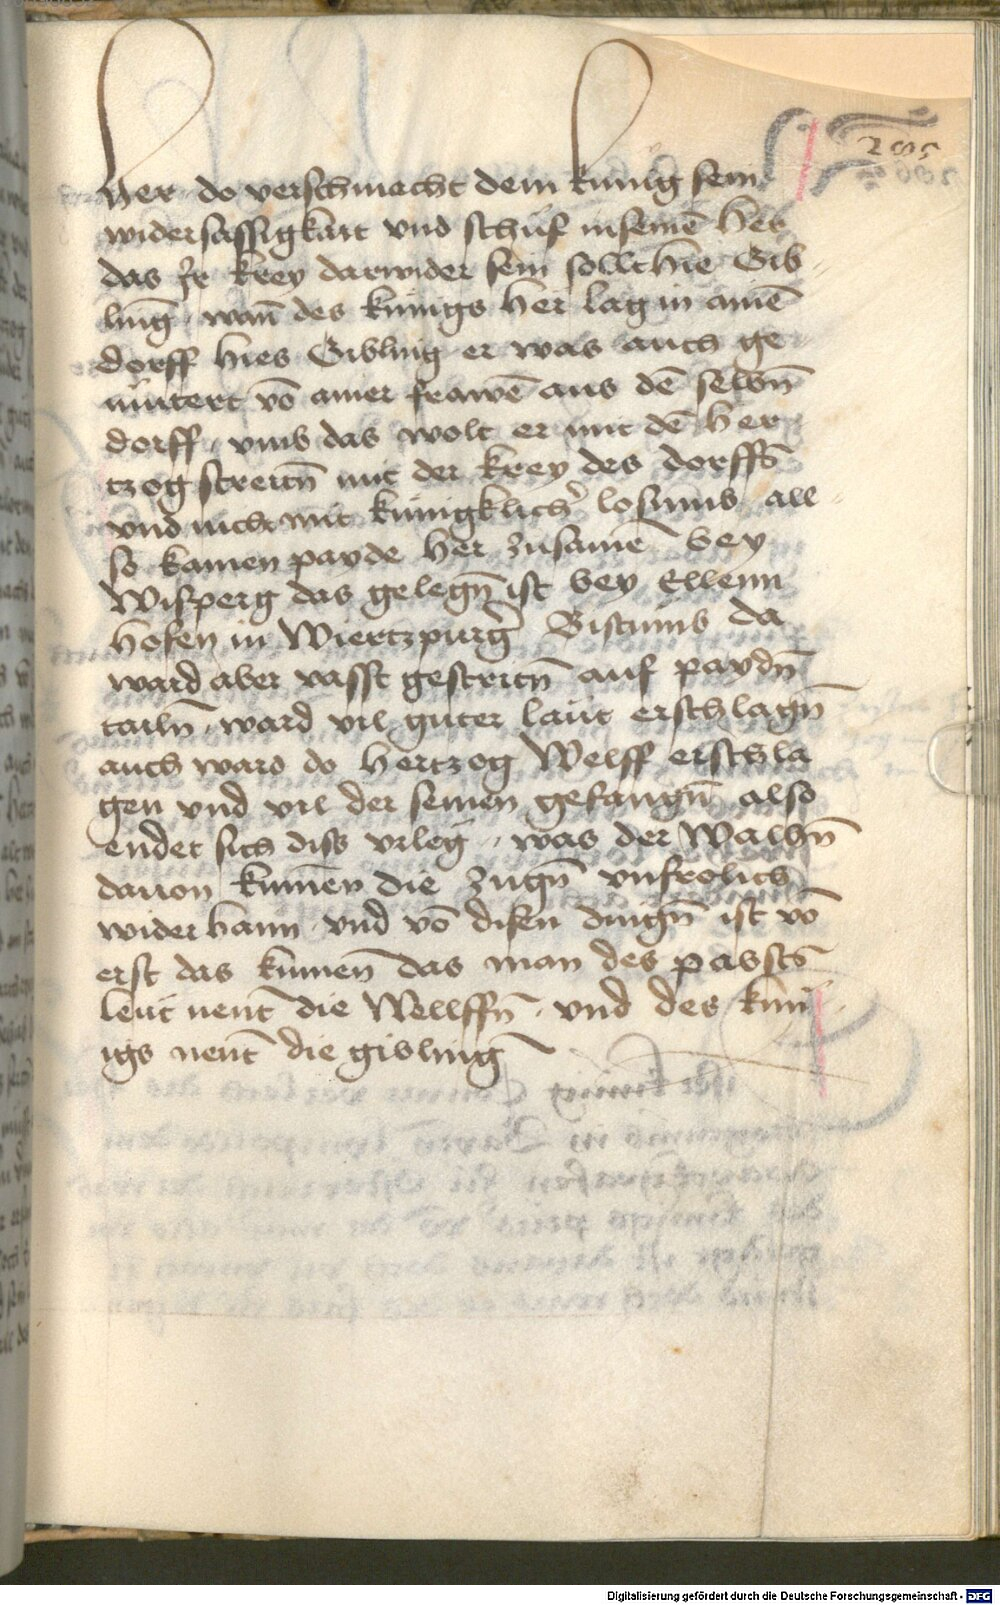 205
her do verschmacht dem kunig sein
widersässigkait vnd schuf in seinē her
das ir krey darwider sein sollt hie Gib
ling wañ des kunigs her lag in ainē
dorff hies Gibling er was auch ge
mutert vō ainer frawē aus dē selbn̄
dorff vmb das wolt er mit dē her
tzog streitn̄ mit der krey des dorffs
vnd nicht mit kunigklich' losung all
so kamen payde her zusamē bey
Wisperg das gelegn̄ ist bey Ellenn
hofen in Wiertzpurg' Bistumb da
ward aber vasst gestritn̄ auf paydn̄
tailn̄ ward vil guter laut erschlagn̄
auch ward do hertzog Welff erschla
gen vnd vil der seinen gefangn̄ also
endet sich diss vrleg was der Walhn̄
dauon kumen die zugn̄ vnfrolich
wider haim vnd vō disen dingn̄ ist vō
erst das kumen̄ das man des pabsts
leut nent die Wellffn̄ vnd des kun
igs nent die gibling
Digitalisierung gefördert durch die Deutsche Forschungsgemeinschaft - DFG